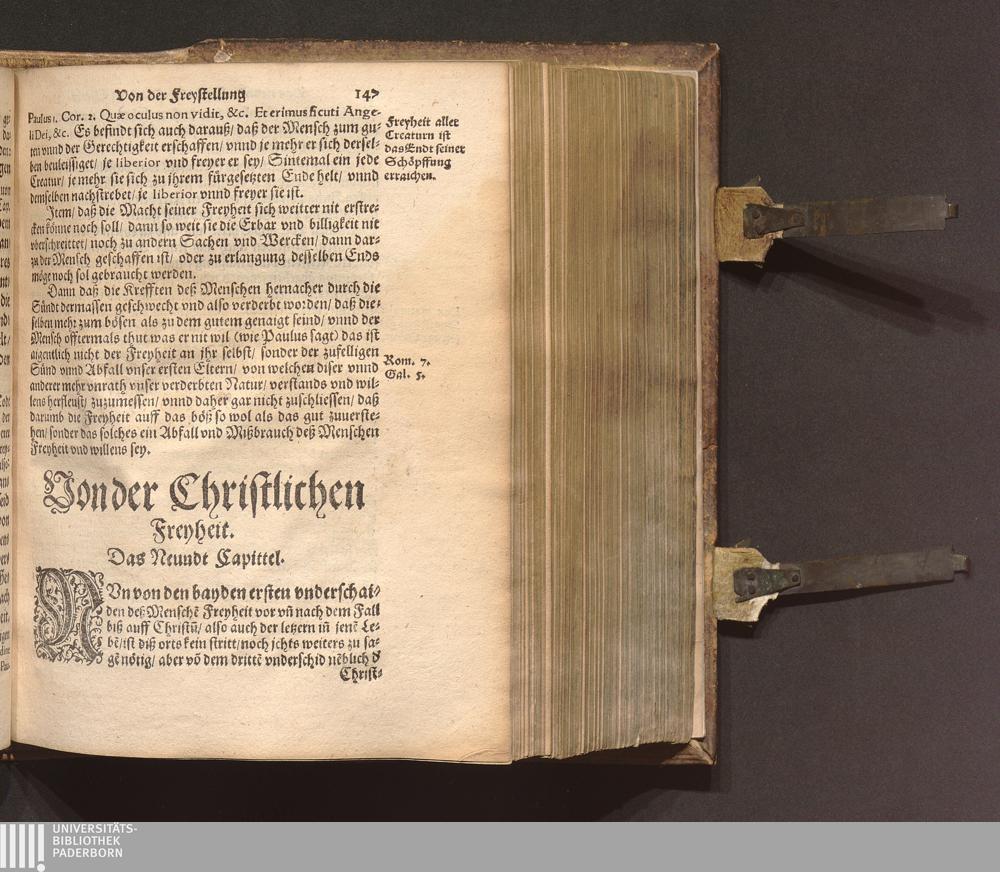 Von der Freystellung 147
Paulus 1. Cor. 2. Quæ oculus non vidit, &c. Et erimus sicuti Ange-
li Dei, &c. Es befindt sich auch darauß/ daß der Mensch zum gu-
ten vnnd der Gerechtigkeit erschaffen/ vnnd je mehr er sich dersel-
ben beuleissiget/ je liberior vnd freyer er sey/ Sintemal ein jede
Creatur/ je mehr sie sich zu jhrem fürgesetzten Ende helt/ vnnd
demselben nachstrebet/ je liberior vnnd freyer sie ist.
Freyheit aller
Creaturn ist
das Endt seiner
Schöpffung
erraichen.
Item/ daß die Macht seiner Freyheit sich weitter nit erstre-
cken könne noch soll/ dann so weit sie die Erbar vnd billigkeit nit
vberschreittet/ noch zu andern Sachen vnd Wercken/ dann dar-
zu der Mensch geschaffen ist/ oder zu erlangung desselben Ends
möge noch sol gebraucht werden.
Dann daß die Krefften deß Menschen hernacher durch die
Sündt dermassen geschwecht vnd also verderbt worden/ daß die-
selben mehr zum bösen als zu dem gutem genaigt seind/ vnnd der
Mensch offtermals thut was er nit wil (wie Paulus sagt) das ist
aigentlich nicht der Freyheit an jhr selbst/ sonder der zufelligen
Sünd vnnd Abfall vnser ersten Eltern/ von welchen diser vnnd
anderer mehr vnrath vnser verderbten Natur/ verstands vnd wil-
lens herfleust/ zuzumessen/ vnnd daher gar nicht zuschliessen/ daß
darumb die Freyheit auff das böß so wol als das gut zuuerste-
hen/ sonder das solches ein Abfall vnd Mißbrauch deß Menschen
Freyheit vnd willens sey.
Rom. 7.
Gal. 5.
Von der Christlichen
Freyheit.
Das Neundt Capittel.
NVn von den bayden ersten vnderschai-
den deß Menschē Freyheit vor vñ nach dem Fall
biß auff Christū/ also auch der letzern iñ jenē Le-
bē/ ist diß orts kein stritt/ noch jchts weiters zu sa-
gē nötig/ aber vō dem drittē vnderschid nēblich d'
Christ-
UNIVERSITÄTS-
BIBLIOTHEK
PADERBORN